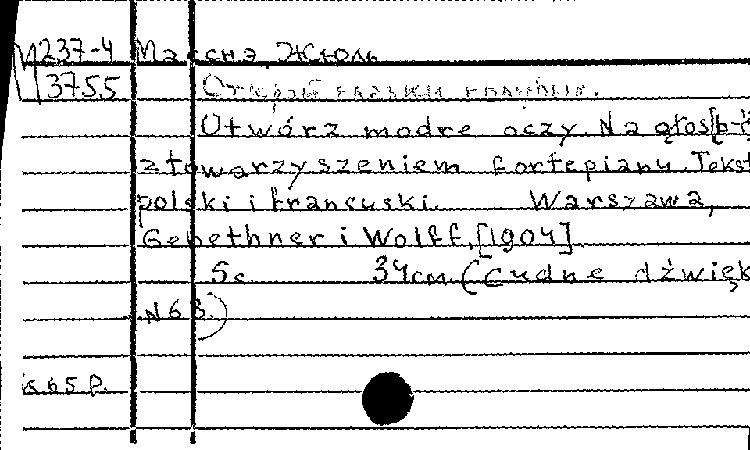 М237-4 Массне, Жюль
3755 Открой глазки голубые.
Utwórz modre oczy. Na głos[b-ł
z towarzyszeniem fortepianu. Tekst
polski i francuski. Warszawa,
Gebethner i Wolff, [1904]
5 с 34 cm. (Cudne dźwięk
N 68.)
к 65 р.